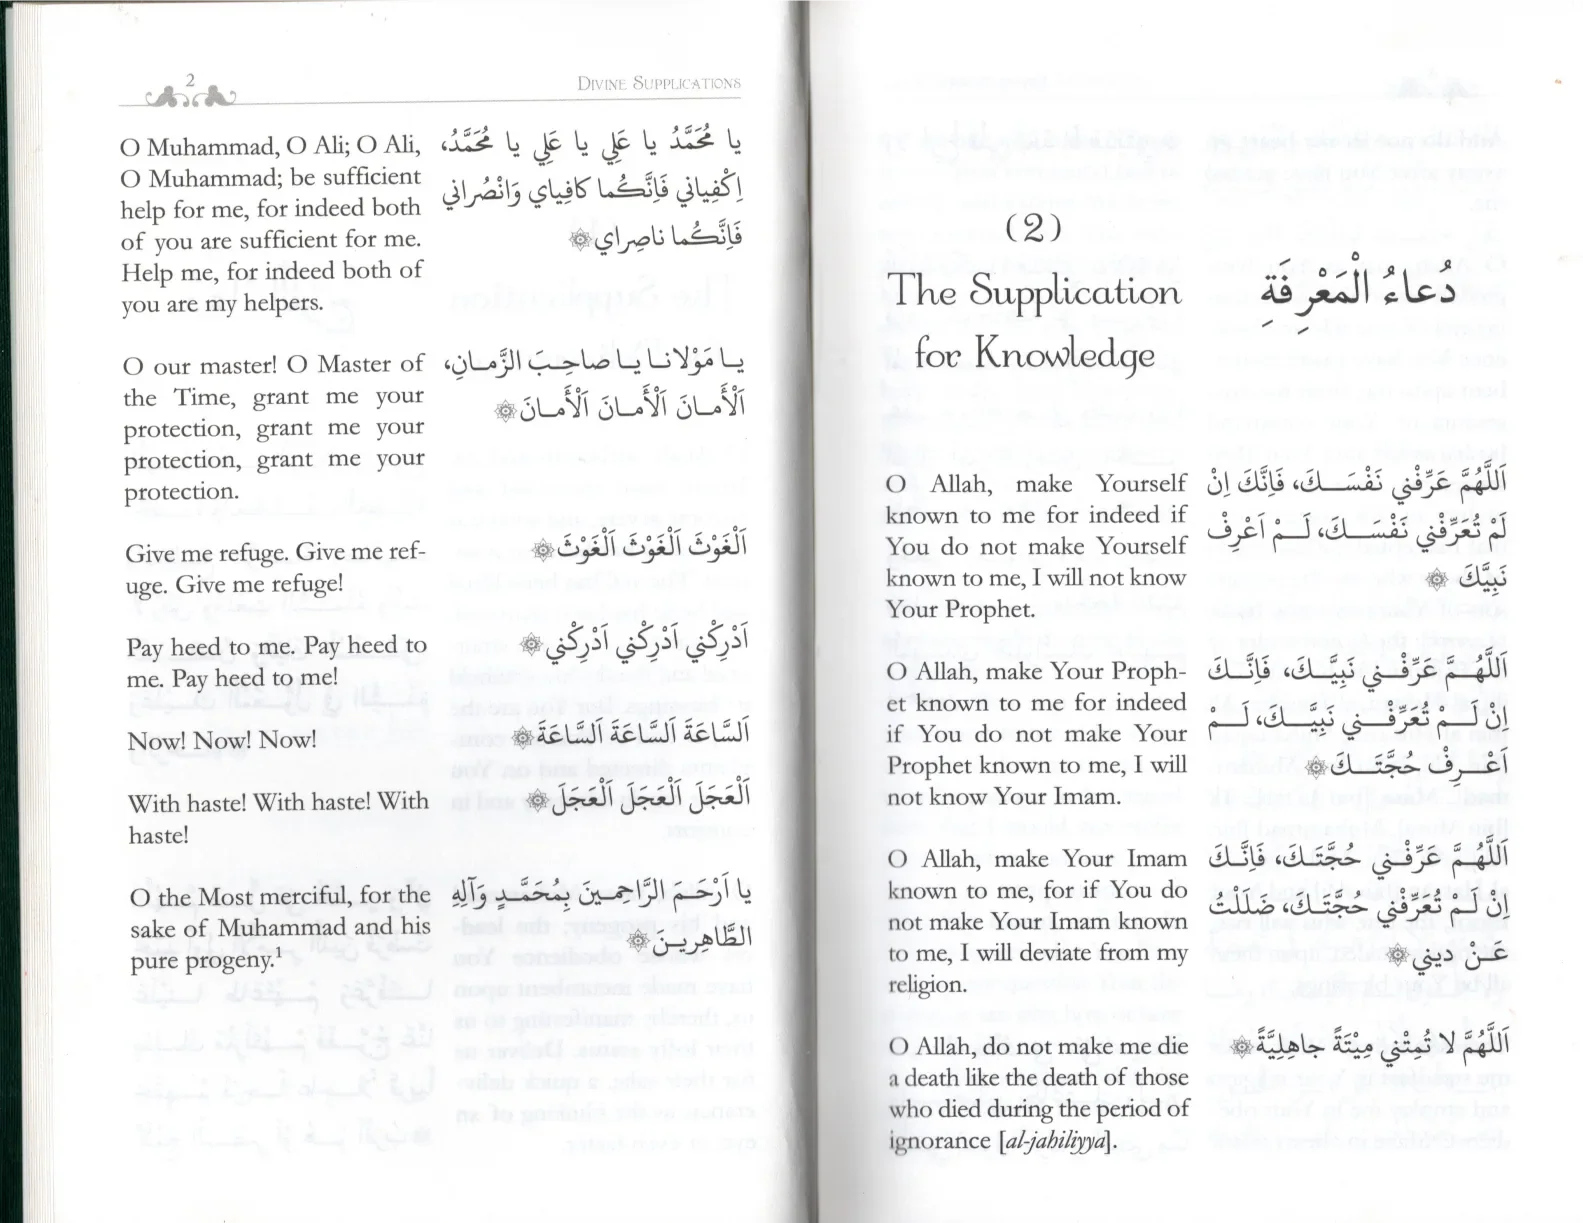 2
DIVINE SUPPLICATIONS
O Muhammad, O Ali; O Ali,
O Muhammad; be sufficient
help for me, for indeed both
of you are sufficient for me.
Help me, for indeed both of
you are my helpers.
يا مُحَمَّدُ يا عَلِي يا عَلِي يا مُحَمَّدُ،
اِكْفِياني فَاِنَّكُما كافِياي وَانْصُراني
فَاِنَّكُما ناصِراي ۞
O our master! O Master of
the Time, grant me your
protection, grant me your
protection, grant me your
protection.
يـا مَوْلانـا يـا صاحِـبَ الزَّمـانِ،
اَلْأَمـانَ اَلْأَمـانَ اَلْأَمـانَ ۞
Give me refuge. Give me ref-
uge. Give me refuge!
اَلْغَوْثَ اَلْغَوْثَ اَلْغَوْثَ ۞
Pay heed to me. Pay heed to
me. Pay heed to me!
اَدْرِكْني اَدْرِكْني اَدْرِكْني ۞
Now! Now! Now!
اَلسّاعَةَ اَلسّاعَةَ اَلسّاعَةَ ۞
With haste! With haste! With
haste!
اَلْعَجَلَ اَلْعَجَلَ اَلْعَجَلَ ۞
O the Most merciful, for the
sake of Muhammad and his
pure progeny.¹
يا اَرْحَمَ الرَّاحِمينَ بِمُحَمَّدٍ وَآلِهِ
الطَّاهِرينَ ۞
(2)
The Supplication
for Knowledge
دُعاءُ الْمَعْرِفَةِ
O Allah, make Yourself
known to me for indeed if
You do not make Yourself
known to me, I will not know
Your Prophet.
اَللّهُمَّ عَرِّفْني نَفْسَـكَ، فَاِنَّكَ اِنْ
لَمْ تُعَرِّفْني نَفْسَـكَ، لَـمْ اَعْرِف
نَبِيَّكَ ۞
O Allah, make Your Proph-
et known to me for indeed
if You do not make Your
Prophet known to me, I will
not know Your Imam.
اَللّهُـمَّ عَرِّفْـني نَبِيَّـكَ، فَاِنَّـكَ
اِنْ لَـمْ تُعَرِّفْـني نَبِيَّـكَ، لَـمْ
اَعْـرِف حُجَّتَـكَ ۞
O Allah, make Your Imam
known to me, for if You do
not make Your Imam known
to me, I will deviate from my
religion.
اَللّهُـمَّ عَرِّفْـني حُجَّتَـكَ، فَاِنَّـكَ
اِنْ لَـمْ تُعَرِّفْـني حُجَّتَـكَ، ضَلَلْتُ
عَـنْ ديني ۞
O Allah, do not make me die
a death like the death of those
who died during the period of
ignorance [al-jahiliyya].
اَللّهُمَّ لا تُمِتْني مِيْتَةً جاهِلِيَّةً ۞